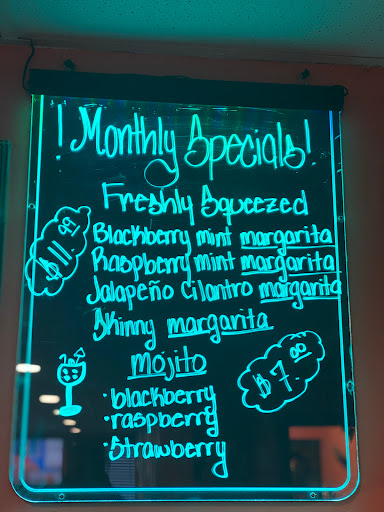 ! Monthly Specials!
Freshly Squeezed
$11.99
Blackberry mint margarita
Raspberry mint margarita
Jalapeño Cilantro margarita
Skinny margarita
mojito
$7.00
·blackberry
·raspberry
·Strawberry